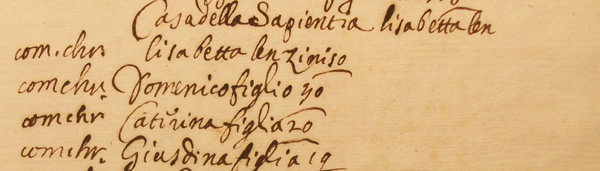 Casa della Sapientia lisabetta len
com. chr. lisabetta len
com chr. Domenico figlio 30
com chr. Caterina figlia 20
com chr. figlia 19